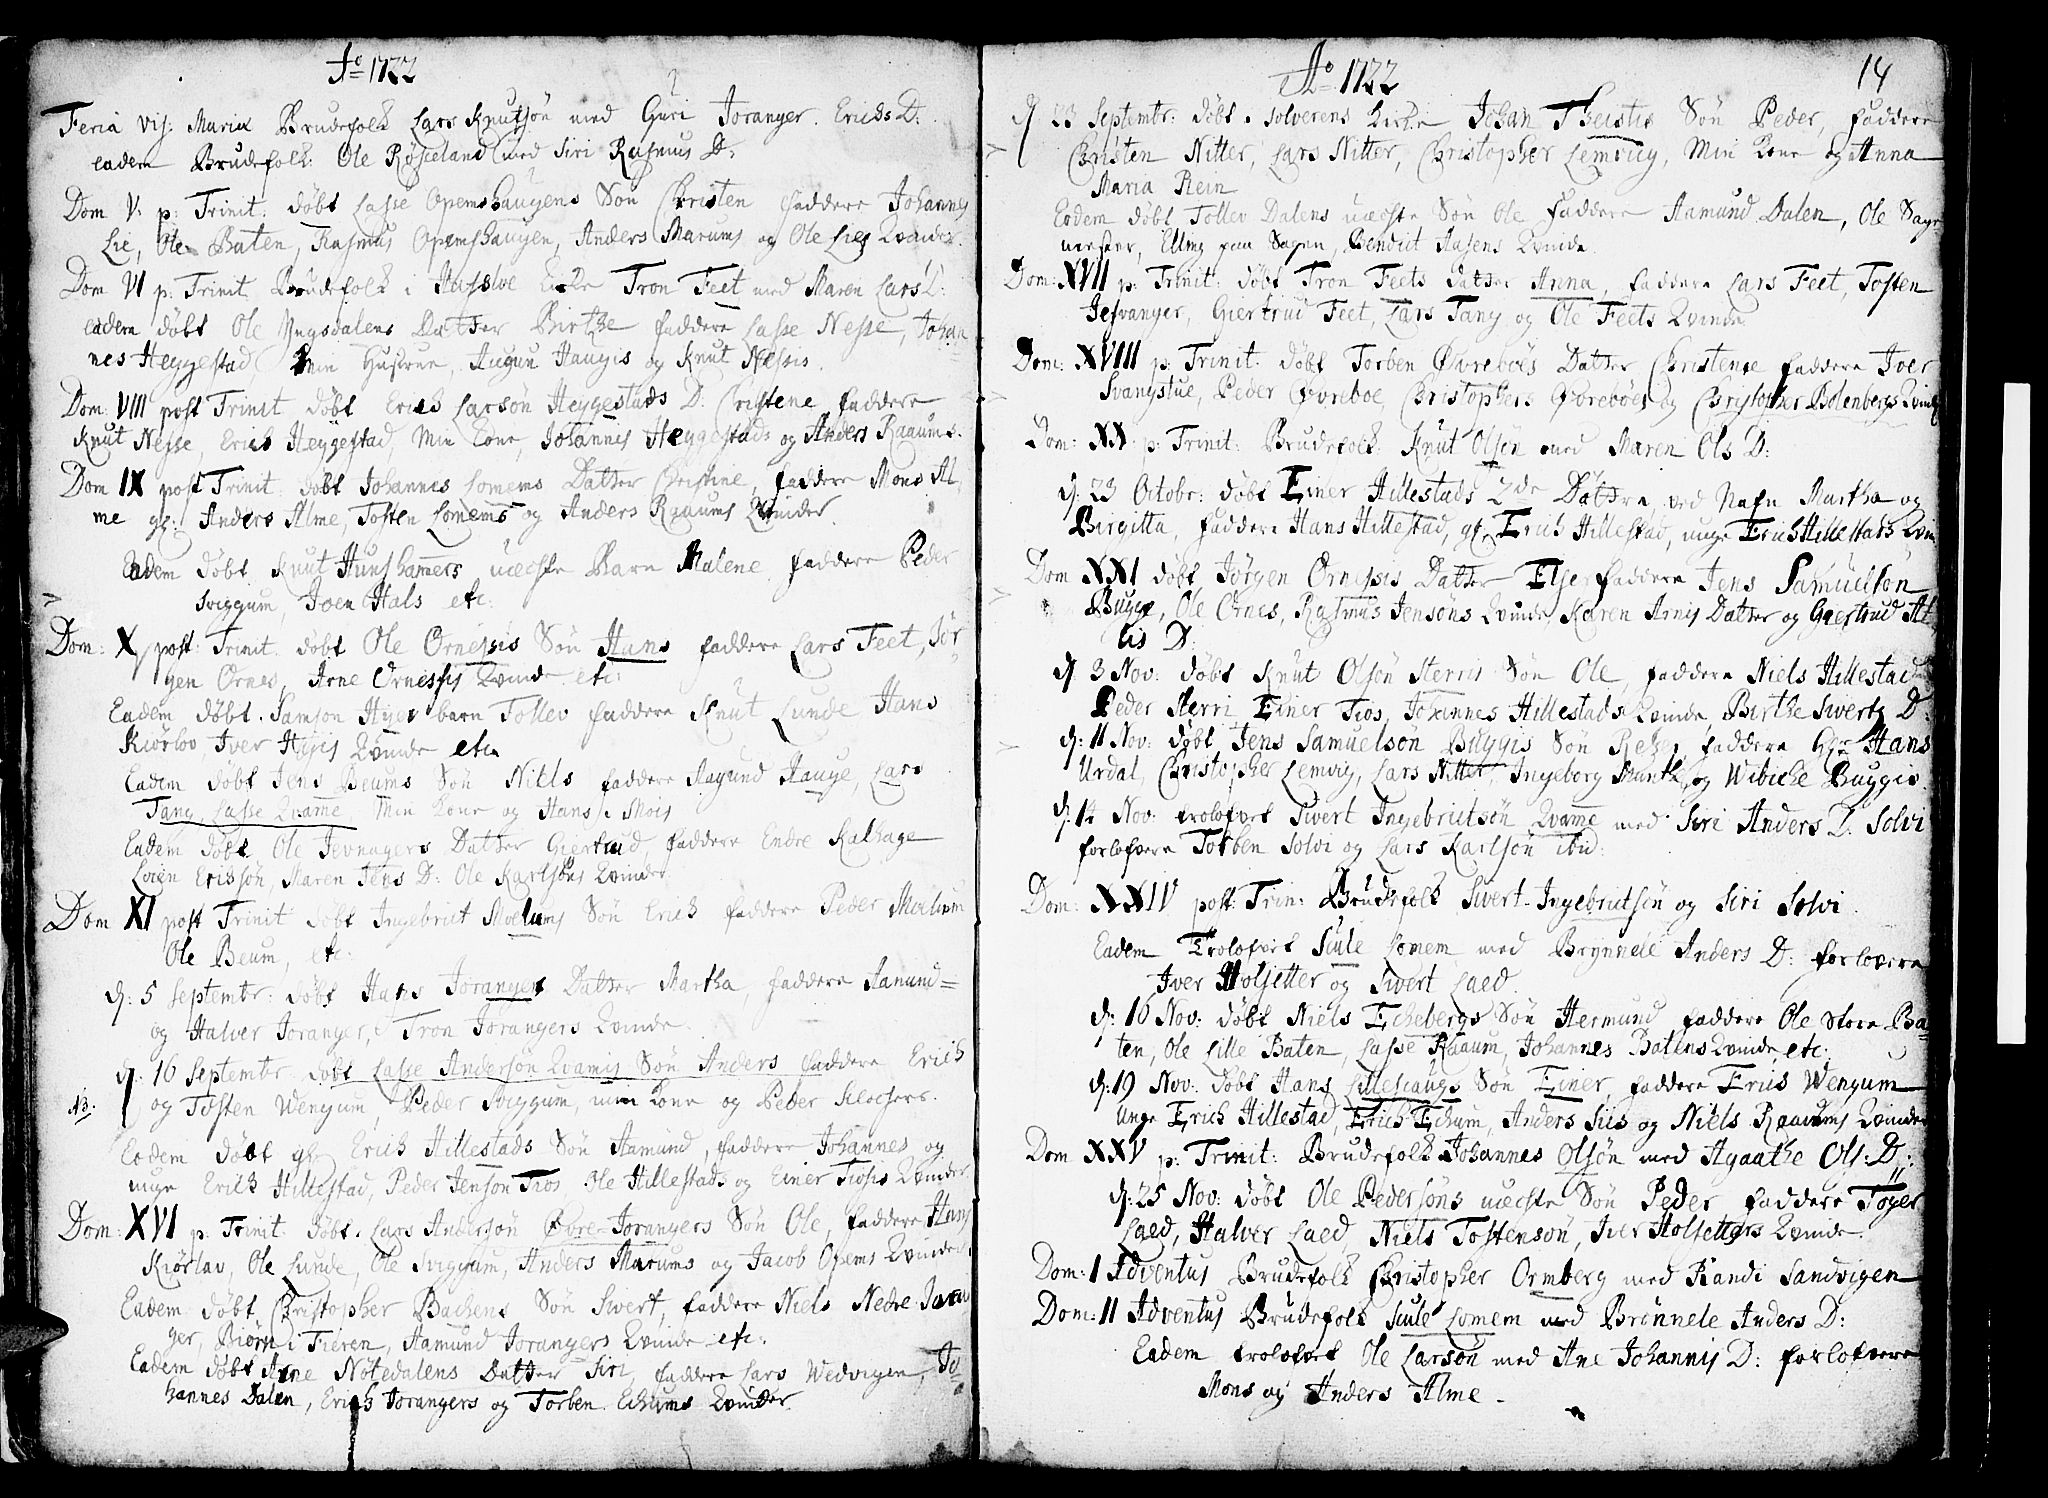 Ao 1722
Feria vis: Mariæ Brudefolk Lars Knutsön med Guri Joranger. Erichs D.
eadem Brudefolk: Ole Röseland med Siri Rasmus D.
Dom V. p: Trinit. döbt Lasse Opemshaugens Sön Christen faddere Johannes
Lie, Ole Baten, Rasmus Opemshaugen, Anders Marums og Ole Lies Qvinder.
Dom VI p: Trinit Brudefolk i Hafslve Kirke Tron Feet med Maren Lars D:
eadem döbt Ole Yngsdalens Datter Birthe faddere Lasse Nesse, Johan
nes Heggestad, Min Hustrue, Haugis og Knut Nessis.
Dom: VIII post Trinit döbt Erich Larsön Heggestads D. Christene faddere
Knut Nesse, Erich Heggestad, Min Kone, Johannes Heggestads og Anders Raaums.
Dom IX post Trinit. döbt Johannes Lomems Datter Christine, faddere Mons Al
me gl: Anders Alme, Tosten Lomems og Anders Raaums Qvinder.
Eadem döbt Knut Hunshamers uæchte Barn Malene faddere Peder
Sviggum, Joen Hals etc:
Dom: X post: Trinit. döbt Ole Ornessis Sön Hans faddere Lars Feet, Jör
gen Ornes, Arne Ornessis Qvinde etc:
Eadem döbt. Samson barn Tollev faddere Knut Lunde Hans
Kiörlov, Iver Qvinde etc.
Eadem döbt Jens Beums Sön Niels faddere Aagund Hauge, Lars
Tang, Lasse Qvame, Min Kone og Hans Mois
Eadem döbt Ole Jevnagers Datter Giertrud faddere Endre Kalhage
Eriksön, Maren Jens D: Ole Karlsöns Qvinder
Dom XI post Trinit döbt Ingebrict Moelums Sön Erich faddere Peder Moelum
Ole Beum, etc:
d: 5 Septembr: döbt Hans Joranger Datter Martha, faddere Aamund=
og Halver Joranger, Tron Jorangers Qvinde.
d: 16 Septembr döbt Lasse Andersön Qvamis Sön Anders faddere Erich
NB. og Tosten Wengum, Peder Sviggum, min Kone og Peder Klochers.
Eodem döbt gl. Erich Hillestads Sön Aamund, faddere Johannes og
unge Erich Hillestad, Peder Jenson Tios, Ole Hillestads og Einer Tiosis Qvinder.
Dom: XVI p. Trinit. döbt. Lars Andersön Övre-Jorangers Sön Ole, faddere Hans
Kiörlav, Ole Lunde, Ole Sviggum, Anders Marums og Jacob Opems Qvinder.
Eadem döbt Christopher Bachens Sön Sivert, faddere Niels Nedre Joran
ger, Biörn i Fieren, Aamund Jorangers Qvinde etc.
Eadem döbt Arne Nötedalens Datter Siri, faddere Lars Wedvigen, Jo
hannes Dalen, Erich Jorangers og Torben Echums Qvinder.
Ao 1722
14
d: 23 Septembr: döbt i Solverens Kirke Johan Theiste Sön Peder, faddere
Christen Nitter, Lars Nitter, Christopher Lemvig, Min Kone og Anna
Maria Rein
Eodem döbt Tollev Dalens uæchte Sön Ole faddere Aamund Dalen, Ole Sage
mester, Elling paa Sagen, Bendict Aasens Qvinde.
Dom: XVII p. Trinit. döbt Tron Feets Datter Anna, faddere Lars Feet, Tosten
Jesvanger, Giertrud Feet, Lars Tang og Ole Feets Qvinde
Dom: XVIII p: Trinit. döbt Torben Övreboes Datter Christense faddere Iver
Svangstue, Peder Övreboe, Christophers Övreboes og Christopher Bolenbergs Qvinde
Dom: XX p: Trinit: Brudefolk: Knut Olsen med Maren Ols D:
d: 23 Octobr: döbt Einer Hillestads 2de Døttre ved Nafn Martha og
Birgitta, faddere Hans Hillestad, gl. Erich Hillestad, unge Erich Hillestads Qvin
Dom XXI döbt Jörgen Ornessis Datter Else faddere Jens Samuelson
Bugge, Ole Ornes, Rasmus Jensöns Qvinde, Karen Arnis Datter og Giertrud At
lis D.
d: 3 Nov: döbt Knut Olsön Herris Sön Ole, faddere Niels Hillestad
Peder Herri, Einer Tios, Johannes Hillestads Qvinde, Birthe Siverts D:
d: 11 Nov: döbt Jens Samuelson Buggis Sön faddere Hr Hans
Urdal, Christopher Lemvig, Lars Nitter, Ingeborg Munth, og Wibicke Buggis.
d: 14 Nov: trolofvet Sivert Ingebrictsön Qvame med Siri Anders D. Solvi
forlofvere Torben Solvi og Lars Karlsön ibid:
Dom: XXIV post: Trin: Brudefolk Sivert-Ingebrictsön og Siri Solvi.
Eadem Trolofvet Scule Lomem med Brynnele Anders D: forlovere
Iver Holsetter og Sivert Laed.
d: 16 Nov: döbt Niels Echebergs Sön Hermund faddere Ole Store Ba
ten, Ole Lille Baten, Lasse Raaum, Johannes Batens Qvinde, etc:
d: 19 Nov: döbt Hans Sön Einer, faddere Erich Wengum
Unge Erich Hillestad, Erich Echum, Anders Siis og Niels Raaums Qvinder
Dom XXV p: Trinit: Brudefolk Johannes Olsön med Agaathe Ols: D:
d: 25 Nov: döbt Ole Pedersöns uæchte Sön Peder faddere Toger
Laed, Halver Laed, Niels Tostensön, Iver Holsetters Qvinde.
Dom: I Adventus Brudefolk Christopher Ormberg med Randi Sandvigen
Dom: II Adventus Brudefolk Scule Lomem med Brönnele Anders D:
Eadem trolofvet Ole Larsön med Ane Johannis D: forlofvere
Mons og Anders Alme.